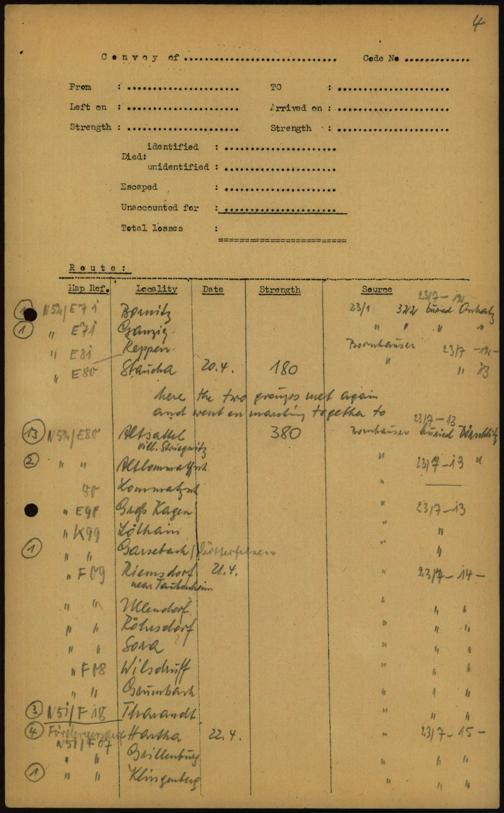 4
Convoy of ............................. Code No .............
From : ...................... TO : ......................
Left on : ...................... Arrived on : ......................
Strength : ...................... Strength : ......................
identified : ......................
Died:
unidentified : ......................
Escaped : ......................
Unaccounted for : ......................
Total losses :
Route:
Map Ref. Locality Date Strength Source
23/7-12-
1 N52/E71 Bornitz 23/1 buried
1 " E71 Ganzig " " " "
" E81 Reppen Bornhäuser 23/7-12-
" E80 Staucha 20.4. 180 " " 13
here the two groups met again
and went on marching together to
23/7-13
13 N52/E80 Altsattel 380 Bornhäuser buried
vill. Striegnitz
2 " " Altlommatzsch " 23/7-13 "
Lommatzsch "
" E98 Groß Kagen " 23/7-13
" K99 Löthain " "
1 " " Garsebach/ " "
" F09 Riemsdorf 21.4. " 23/7-14-
near Taubenheim
" " Ullendorf " " "
" " Röhrsdorf " " "
" " Sora " " "
" F08 Wilsdruff " " "
" " Grumbach " " "
3 N51/F18 Tharandt " " "
4 Hartha 22.4. " 23/7-15-
N51/F07
" " Grillenburg " " "
1 " " Klingenberg " " "